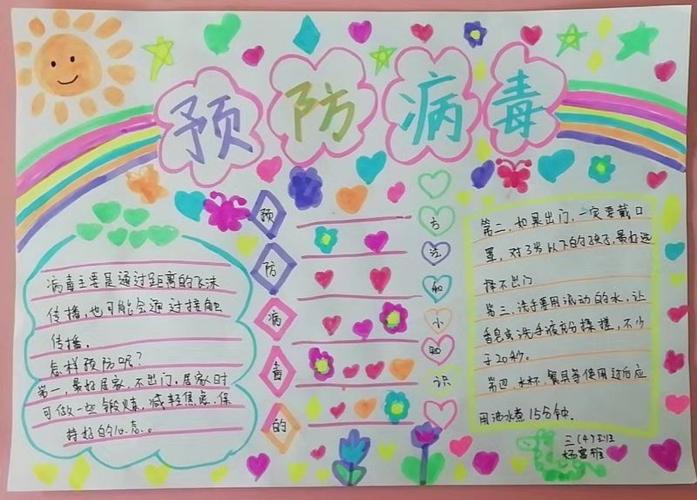 预防病毒
病毒主要是通过近距离的飞沫
传播,也可能会通过接触
传播。
怎样预防呢?
第一,最好居家,不出门。居家时
可做一些锻炼,减轻焦虑,保
持好的心态。
预
防
病
毒
的
方
法
和
小
知
识
第二,如果出门,一定要戴口
罩,对3岁以下的孩子,最好选
择不出门
第三,洗手要用流动的水,让
香皂或洗手液充分揉搓,不少
于20秒。
第四,水杯、餐具等使用过后应
用沸水煮15分钟。
三(4)班